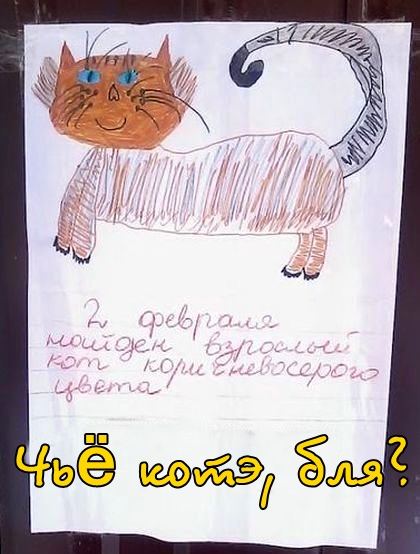 2 февраля
найден взрослый
кот коричневосерого
цвета
Чьё котэ, бля?